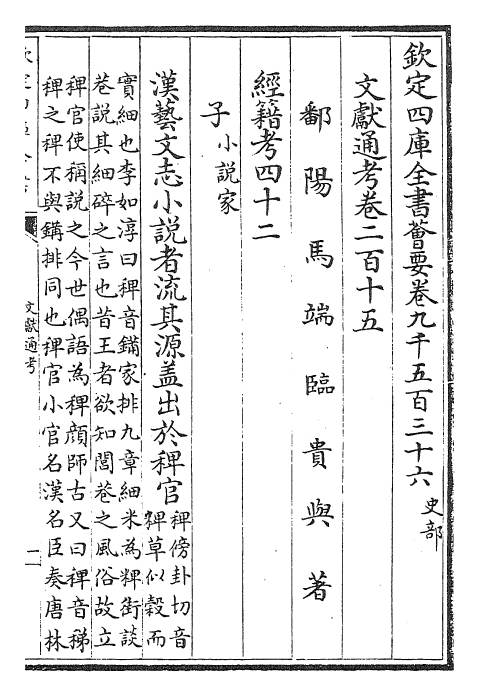 欽定四庫全書薈要卷九千五百三十六 史部
文獻通考卷二百十五
鄱陽馬端臨貴與著
經籍考四十二
子 小說家
漢藝文志小說者流其源蓋出於稗官 稗傍卦切音
稗草似穀而
實細也李如淳曰稗音鏅家排九章細米為粺街談
巷說其細碎之言也昔王者欲知閭巷之風俗故立
稗官使稱說之今世偶語為稗顔師古又曰稗音稊
稗之稗不與鏅排同也稗官小官名漢名臣奏唐林
文獻通考
一